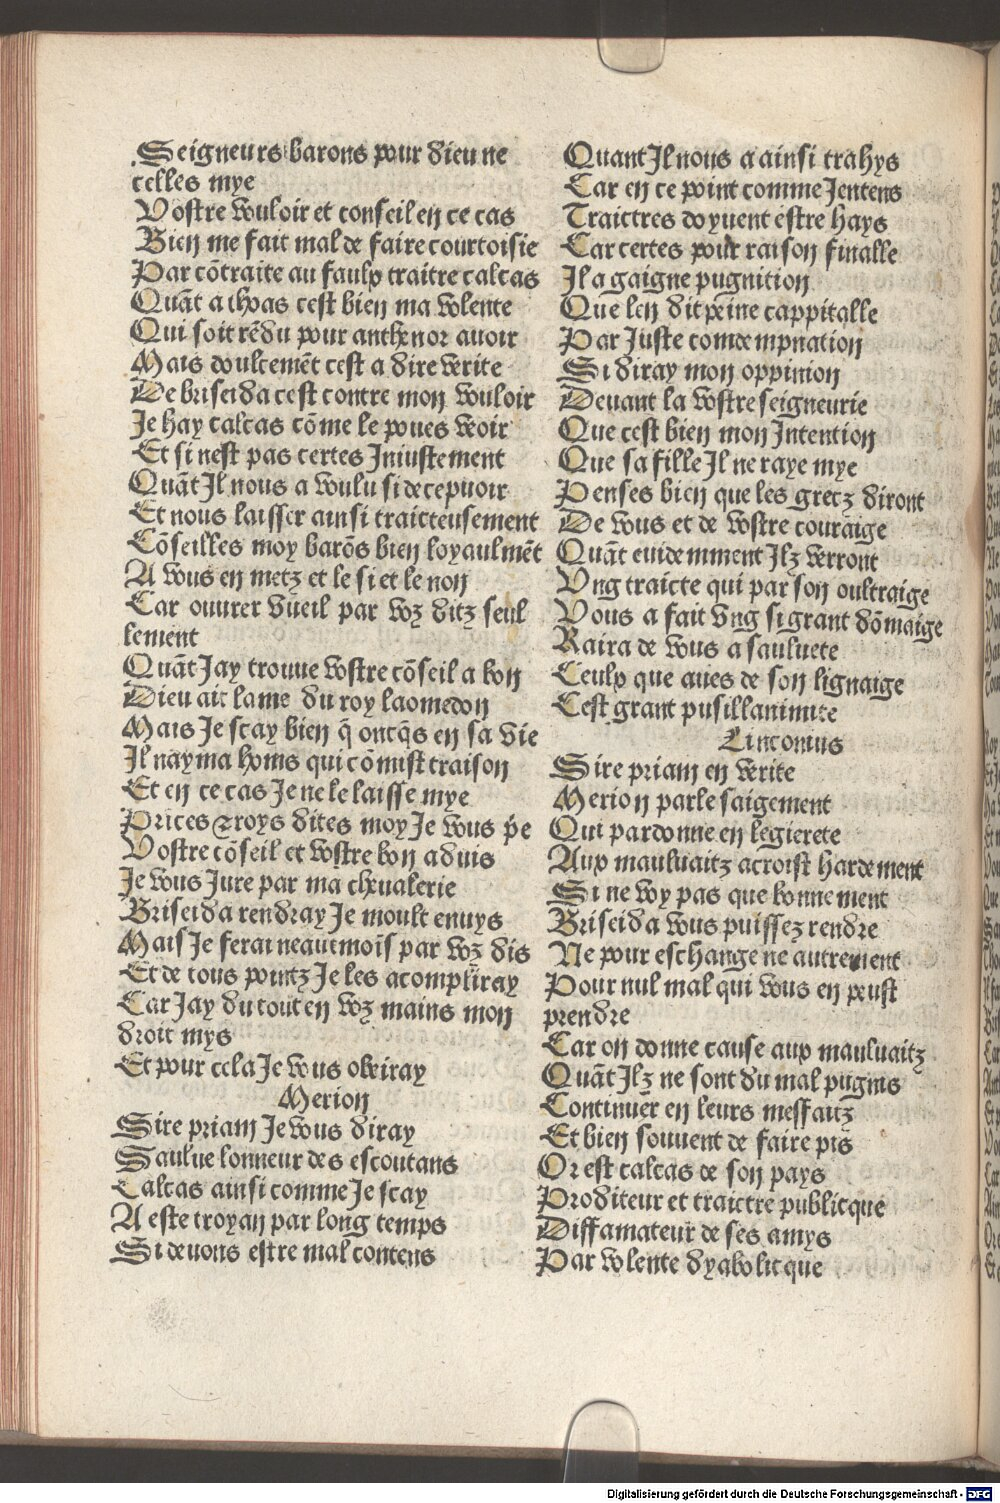 Seigneurs barons pour dieu ne
celles mye
Vostre vouloir et conseil en ce cas
Bien me fait mal de faire courtoisie
Par cõtraite au faulx traitre calcas
Quãt a thoas cest bien ma volente
Qui soit rẽdu pour anthenor avoir
Mais doulcemẽt cest a dire verite
De briseida cest contre mon vouloir
Je hay calcas cõme le poves veoir
Et si nest pas certes Jniustement
Quãt Jl nous a voulu si decepuoir
Et nous laisser ainsi traicteusement
Cõseilles moy barõs bien loyaulmẽt
A vous en metz et le si et le non
Car ouurer vueil par voz ditz seul
lement
Quãt Jay trouue vostre cõseil a bon
Dieu ait lame du roy laomedon
Mais Je scay bien q̃ oncq̃s en sa vie
Jl nayma homs qui cõmist traison
Et en ce cas Je ne le laisse mye
Prĩces ⁊ roys dites moy Je vous p̃e
Vostre cõseil et vostre bon aduis
Je vous Jure par ma cheualerie
Briseida rendray Je moult enuys
Mais Je ferai neautmoĩs par voz dis
Et de tous pointz Je les acompliray
Car Jay du tout en voz mains mon
droit mys
Et pour cela Je vous obeiray
Merion
Sire priam Je vous diray
Saulue lonneur des escoutans
Calcas ainsi comme Je scay
A este troyan par long temps
Si deuons estre mal contens
Quant Jl nous a ainsi trahys
Car en ce point comme Jentens
Traictres doyuent estre hays
Car certes pour raison finalle
Jl a gaigne pugnition
Que len dit peine cappitalle
Par Juste comdempnation
Si diray mon oppinion
Deuant la vostre seigneurie
Que cest bien mon Jntention
Que sa fille Jl ne raye mye
Penses bien que les grecz diront
De vous et de vostre couraige
Quãt euidemment Jlz verront
Vng traicte qui par son oultraige
Vous a fait vng si grant dõmaige
Raira de vous a sauluete
Ceulx que aues de son lignaige
Cest grant pusillanimite
Cinconius
Sire priam en verite
Merion parle saigement
Qui pardonne en legierete
Aux mauluaitz acroist hardement
Si ne voy pas que bonnement
Briseida vous puissez rendre
Ne pour eschange ne autrement
Pour nul mal qui vous en peust
prendre
Car on donne cause aux mauluaitz
Quãt Jlz ne sont du mal pugnis
Continuer en leurs meffaitz
Et bien souuent de faire pis
Or est calcas de son pays
Proditeur et traictre publicque
Diffamateur de ses amys
Par volente dyabolicque
Digitalisierung gefördert durch die Deutsche Forschungsgemeinschaft - DFG